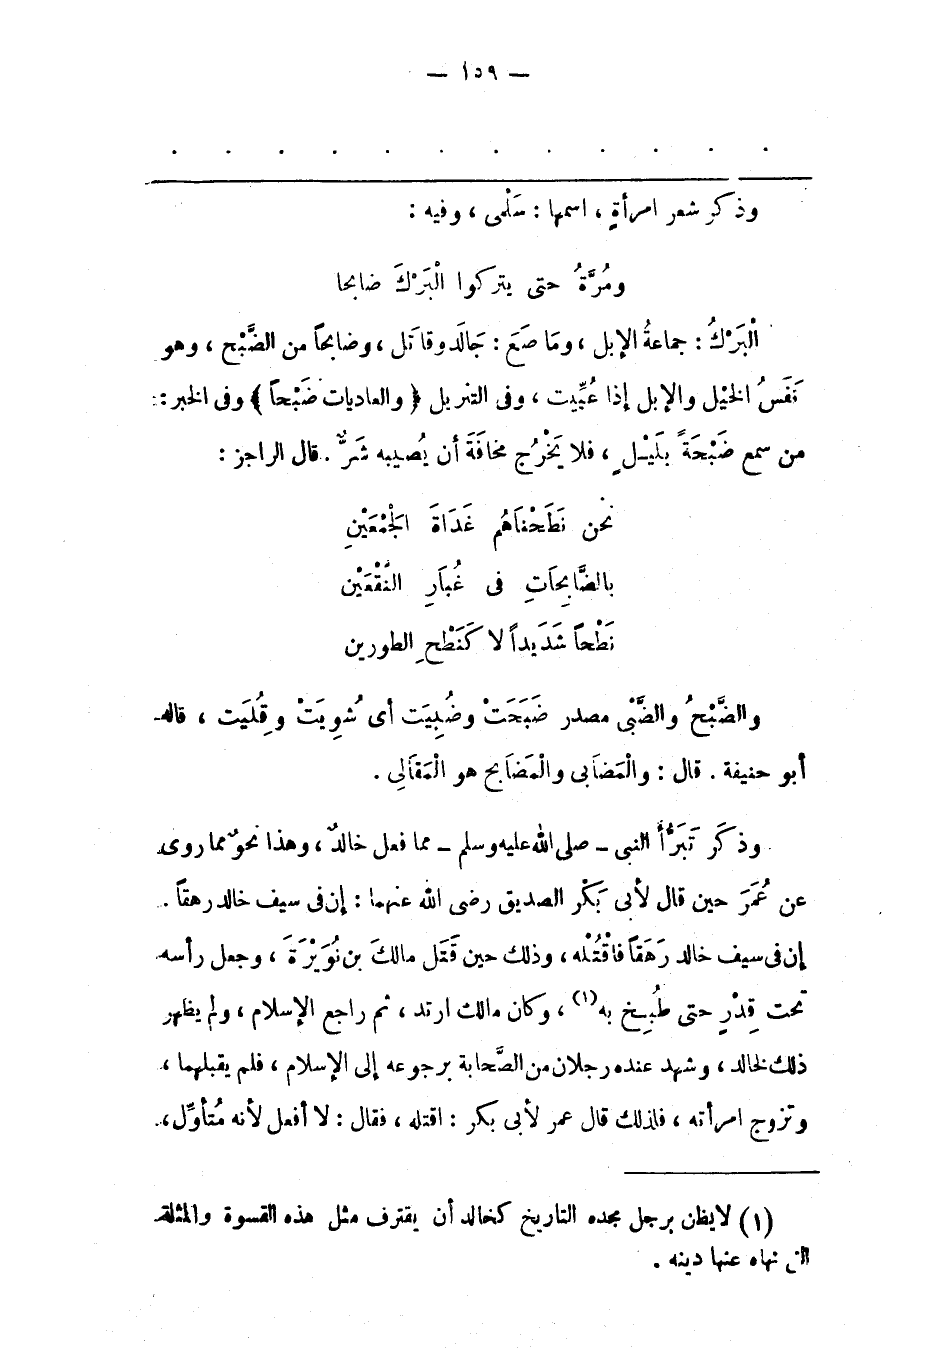 — ١٥٩ —
. . . . . . . . . . . .
وذكر شعر امرأةٍ ، اسمها : سَلْمى ، وفيه :
ومُرَّةُ حتى يتركوا الْبَرْكَ ضابحا
الْبَرْكُ : جماعةُ الإبل ، ومَا صَعَ : جَالَد وقاتَل ، وضابحاً من الضَّبْح ، وهو
نَفَسُ الخيْل والإبل إذا عُيِّيت ، وفى التنزيل ﴿ والعاديات ضَبْحاً ﴾ وفى الخبر :
من سمع ضَبْحَةً بلَيْلٍ ، فلا يَخْرُج مخافَةَ أن يُصيبه شَرٌّ . قال الراجز :
نحن نَطَحْنَاهُم غَدَاةَ الجَمْعَيْنِ
بالضَّابِحَاتِ فى غُبَارِ النَّقْعَيْن
نَطْحاً شَدَيداً لا كَنَطْحِ الطورين
والضَّبْحُ والضَّبْى مصدر ضَبَحَتْ وضُبِيَت أى شُوِيَتْ وقُلِيَت ، قاله
أبو حنيفة . قال : والْمَضَابى والْمَضَابح هو الْمَقَالِى .
وذكَر تَبَرُّأَ النبى – صلى الله عليه وسلم – مما فعل خالدٌ ، وهذا نحوٌ مما روى
عن عُمَرَ حين قال لأبى بَكْر الصديق رضى الله عنهما : إن فى سيف خالد رهقاً .
إن فى سيف خالد رَهَقاً فاقْتُلْه ، وذلك حين قَتَل مالكَ بن نُوَيْرَةَ ، وجعل رأسه
تحت قِدْرٍ حتى طُبِخ به(١) ، وكان مالك ارتد ، ثم راجع الإسلام ، ولم يظهر
ذلك لخالد ، وشهد عنده رجلان من الصَّحابة برجوعه إلى الإسلام ، فلم يقبلهما ،
وتزوج امرأته ، فلذلك قال عمر لأبى بكر : اقتله ، فقال : لا أفعل لأنه مُتأوِّل ،
(١) لايظن برجل مجده التاريخ كخالد أن يقترف مثل هذه القسوة والمثلة
التى نهاه عنها دينه .